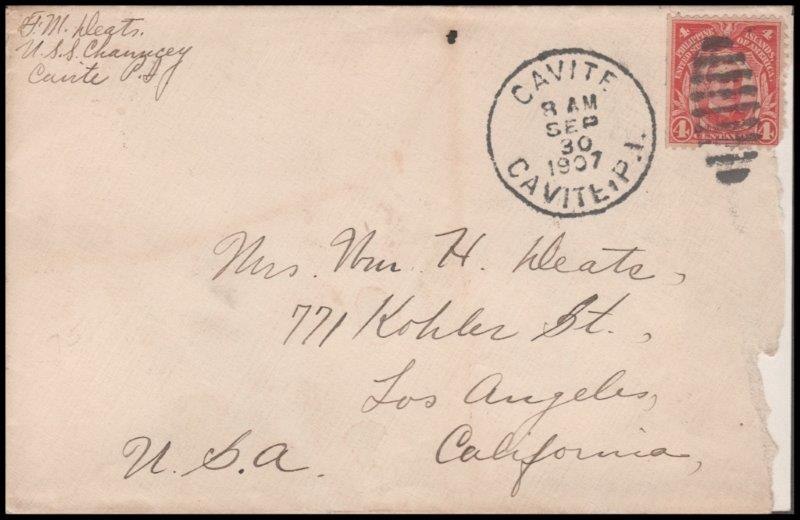 F. M. Deats.
U.S.S. Chauncey
Cavite P.I.
CAVITE
8 AM
SEP
30
1907
CAVITE, P.I.
4 4
PHILIPPINE ISLANDS.
UNITED STATES OF AMERICA.
4 CENTAVOS 4
Mrs. Wm. H. Deats,
771 Kohler St.,
Los Angeles,
California,
U.S.A.